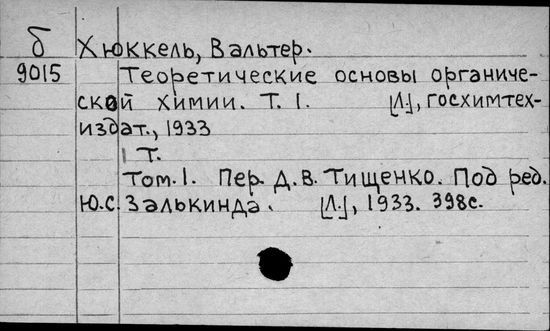 б Хюккель, Вальтер.
9015 Теоретические основы органиче-
ской химии. Т. 1. [Л.], госхимтех-
издат., 1933
1 Т.
Том. 1. Пер. Д. В. Тищенко. Под ред.
Ю.С. Залькинда. [Л.], 1933. 398с.